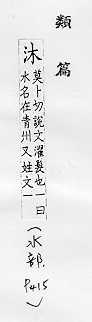 類篇
沐莫卜切說文濯髮也一曰
水名在青州又姓文一
(水部. P415)